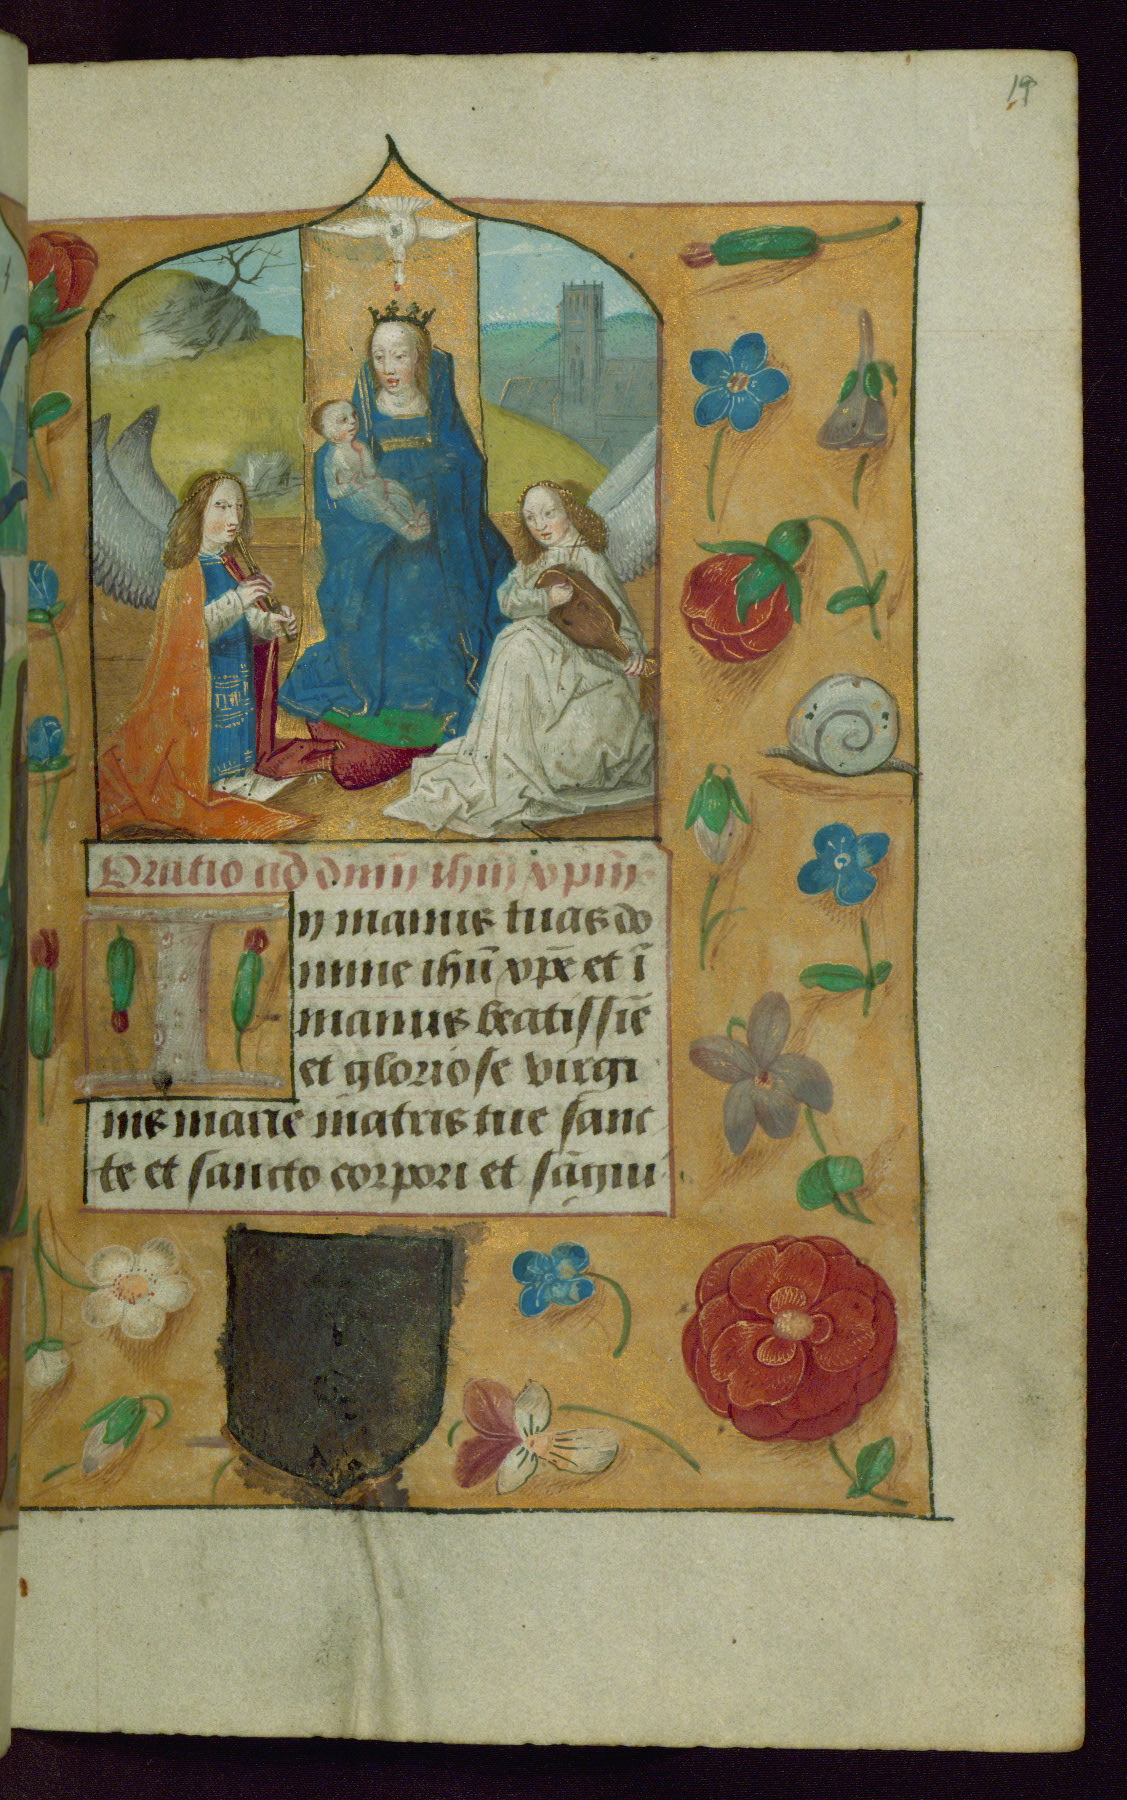 19
Oratio ad dnm̄ ihm̄ xpm̄
In manus tuas do
mine ihū xp̄e et ī
manus beatissiē
et gloriose virgi
nis marie matris tue sanc
te et sancto corpori et sāgui